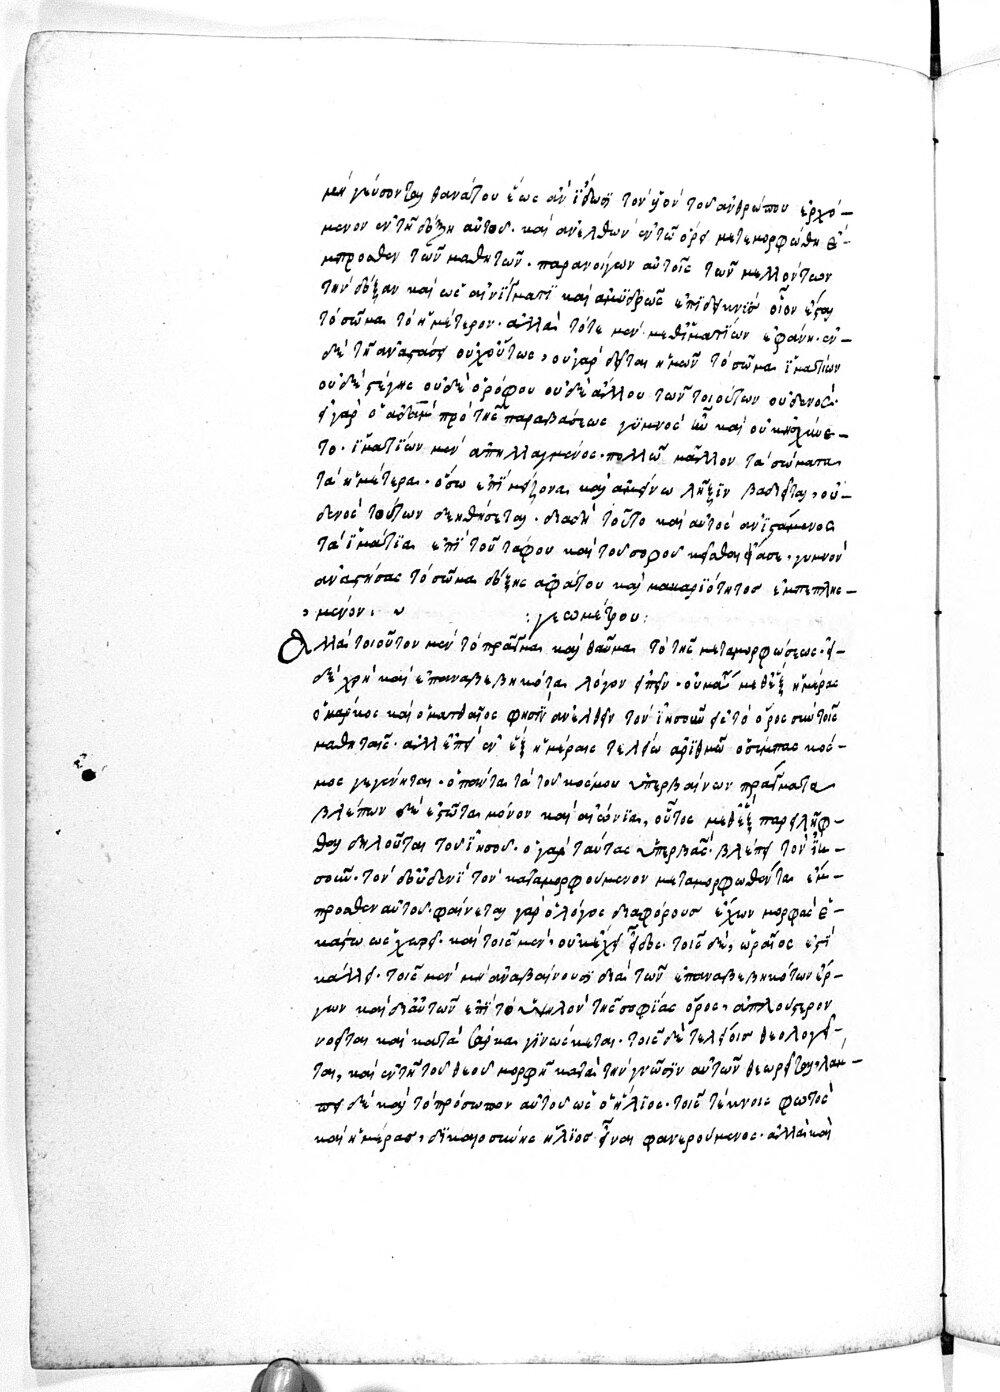 μὴ γεύσονται θανάτου ἕως ἂν ἴδωσι τὸν υἱὸν τοῦ ἀνθρώπου ἐρχό-
μενον ἐν τῇ δόξῃ αὐτοῦ. καὶ ἀνελθὼν ἐν τῷ ὄρει μετεμορφώθη ἔ-
μπροσθεν τῶν μαθητῶν. παρανοίγων αὐτοῖς τῶν μελλόντων
τὴν δόξαν καὶ ὡς αἰνίγματι καὶ ἀμυδρῶς ἐπιδεικνὺς οἷον ἔσται
τὸ σῶμα τὸ ἡμέτερον. ἀλλὰ τότε μὲν μεθ' ἱματίων ἐφάνη. ἐν
δὲ τῇ ἀναστάσει οὐχ οὕτως, οὐ γὰρ δεῖται ἡμῶν τὸ σῶμα ἱματίων
οὐδὲ στέγης οὐδὲ ὀρόφου οὐδὲ ἄλλου τῶν τοιούτων οὐδενός.
εἰ γὰρ ὁ ἀδὰμ πρὸ τῆς παραβάσεως γυμνὸς ὢν καὶ οὐκ ᾐσχύνε-
το. ἱματίων μὲν ἀπηλλαγμένος. πολλῷ μᾶλλον τὰ σώματα
τὰ ἡμέτερα. ὅσω ἐπὶ μείζονα καὶ ἀμείνω λῆξιν βαδιεῖται, οὐ-
δενὸς τούτων δεηθήσεται. διαδὴ τοῦτο καὶ αὐτὸς ἀνιστάμενος
τὰ ἱμάτια ἐπὶ τοῦ τάφου καὶ τοῦ σοροῦ κεῖσθαι εἴασε. γυμνὸν
ἀναστήσας τὸ σῶμα δόξης ἀφάτου καὶ μακαριότητος ἐμπεπλησ-
μένον. γεωμέτρου:
Ἀλλὰ τοιοῦτον μὲν τὸ πρᾶγμα καὶ θαῦμα τὸ τῆς μεταμορφώσεως. εἰ
δὲ χρὴ καὶ ἐπαναβεβηκότα λόγον εἰπεῖν. οὐ μάτην μεθ' ἓξ ἡμέρας
ὁ μάρκος καὶ ὁ ματθαῖος φησὶν ἀνελθεῖν τὸν ἰησοῦν εἰς τὸ ὄρος σὺν τοῖς
μαθηταῖς. ἀλλ' ἐπεὶ ἐν ἓξ ἡμέραις τελείω ἀριθμῷ ὁ σύμπας κόσ-
μος γεγένηται. ὁ πάντα τὰ τοῦ κόσμου ὑπερβαίνων πράγματα
βλέπων δὲ ἐς τὰ μόνον καὶ αἰώνια, οὗτος μεθ' ἓξ παρειλῆφ-
θαι δηλοῦται τοῦ ἰησοῦ. ὁ γὰρ ταύτας ὑπερβὰς. βλέπει τὸν ἰη-
σοῦν. τὸν δὲ οὐδενὶ τὸν καταμορφούμενον μεταμορφωθέντα ἔμ-
προσθεν αὐτοῦ. φαίνεται γὰρ ὁ λόγος διαφόρους ἔχων μορφὰς ἑ-
κάστω ὡς ἐχώρει. καὶ τοῖς μὲν, οὐκ ἔχει εἶδος. τοῖς δὲ, ὡραῖος ἐστὶ
κάλλει. τοῖς μὲν μὴ ἀναβαίνουσι διὰ τῶν ἐπαναβεβηκότων ἔρ-
γων καὶ δι' αὐτῶν ἐπὶ τὸ ὑψηλὸν τῆς σοφίας ὄρος, ἁπλούστερον
νοεῖται καὶ κατὰ σάρκα γινώσκεται. τοῖς δὲ τελείοις θεολογεῖ-
ται, καὶ ἐν τῇ τοῦ θεοῦ μορφῇ κατὰ τὴν γνῶσιν αὐτῶν θεωρεῖται. λάμ-
πει δὲ καὶ τὸ πρόσωπον αὐτοῦ ὡς ὁ ἥλιος. τοῖς τέκνοις φωτὸς
καὶ ἡμέρας, δικαιοσύνης ἥλιος εἶναι φανερούμενος. ἀλλὰ καὶ